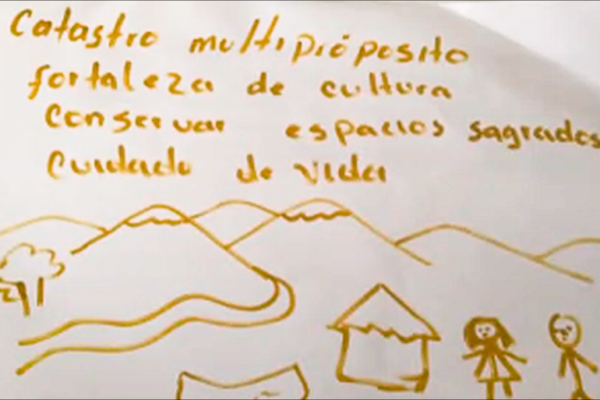 Catastro multipróposito
fortaleza de cultura
Conservar espacios sagrados
Cuidado de vida